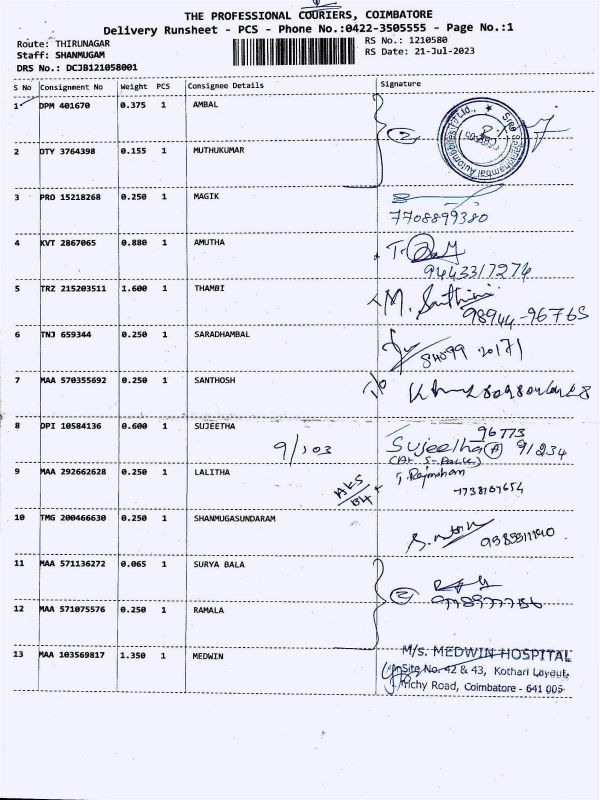 THE PROFESSIONAL COURIERS, COIMBATORE
Delivery Runsheet - PCS - Phone No.:0422-3505555 - Page No.:1
Route: THIRUNAGAR
Staff: SHANMUGAM
DRS No.: DCJB121058001
RS No.: 1210580
RS Date: 21-Jul-2023
S No Consignment No Weight PCS Consignee Details Signature
1 DPM 401670 0.375 1 AMBAL
2 DTY 3764398 0.155 1 MUTHUKUMAR
3 PRO 15218268 0.250 1 MAGIK 7708899380
4 KVT 2867065 0.880 1 AMUTHA 9443317274
5 TRZ 215203511 1.600 1 THAMBI 98944-96765
6 TNJ 659344 0.250 1 SARADHAMBAL
7 MAA 570355692 0.250 1 SANTHOSH
8 DPI 10584136 0.600 1 SUJEETHA 9/103 Sujeetha 96773 91234
9 MAA 292662628 0.250 1 LALITHA
10 TMG 200466630 0.250 1 SHANMUGASUNDARAM
11 MAA 571136272 0.065 1 SURYA BALA
12 MAA 571075576 0.250 1 RAMALA
13 MAA 103569817 1.350 1 MEDWIN
M/s. MEDWIN HOSPITAL
Site No. 42 & 43, Kothari Layout,
Trichy Road, Coimbatore - 641 005